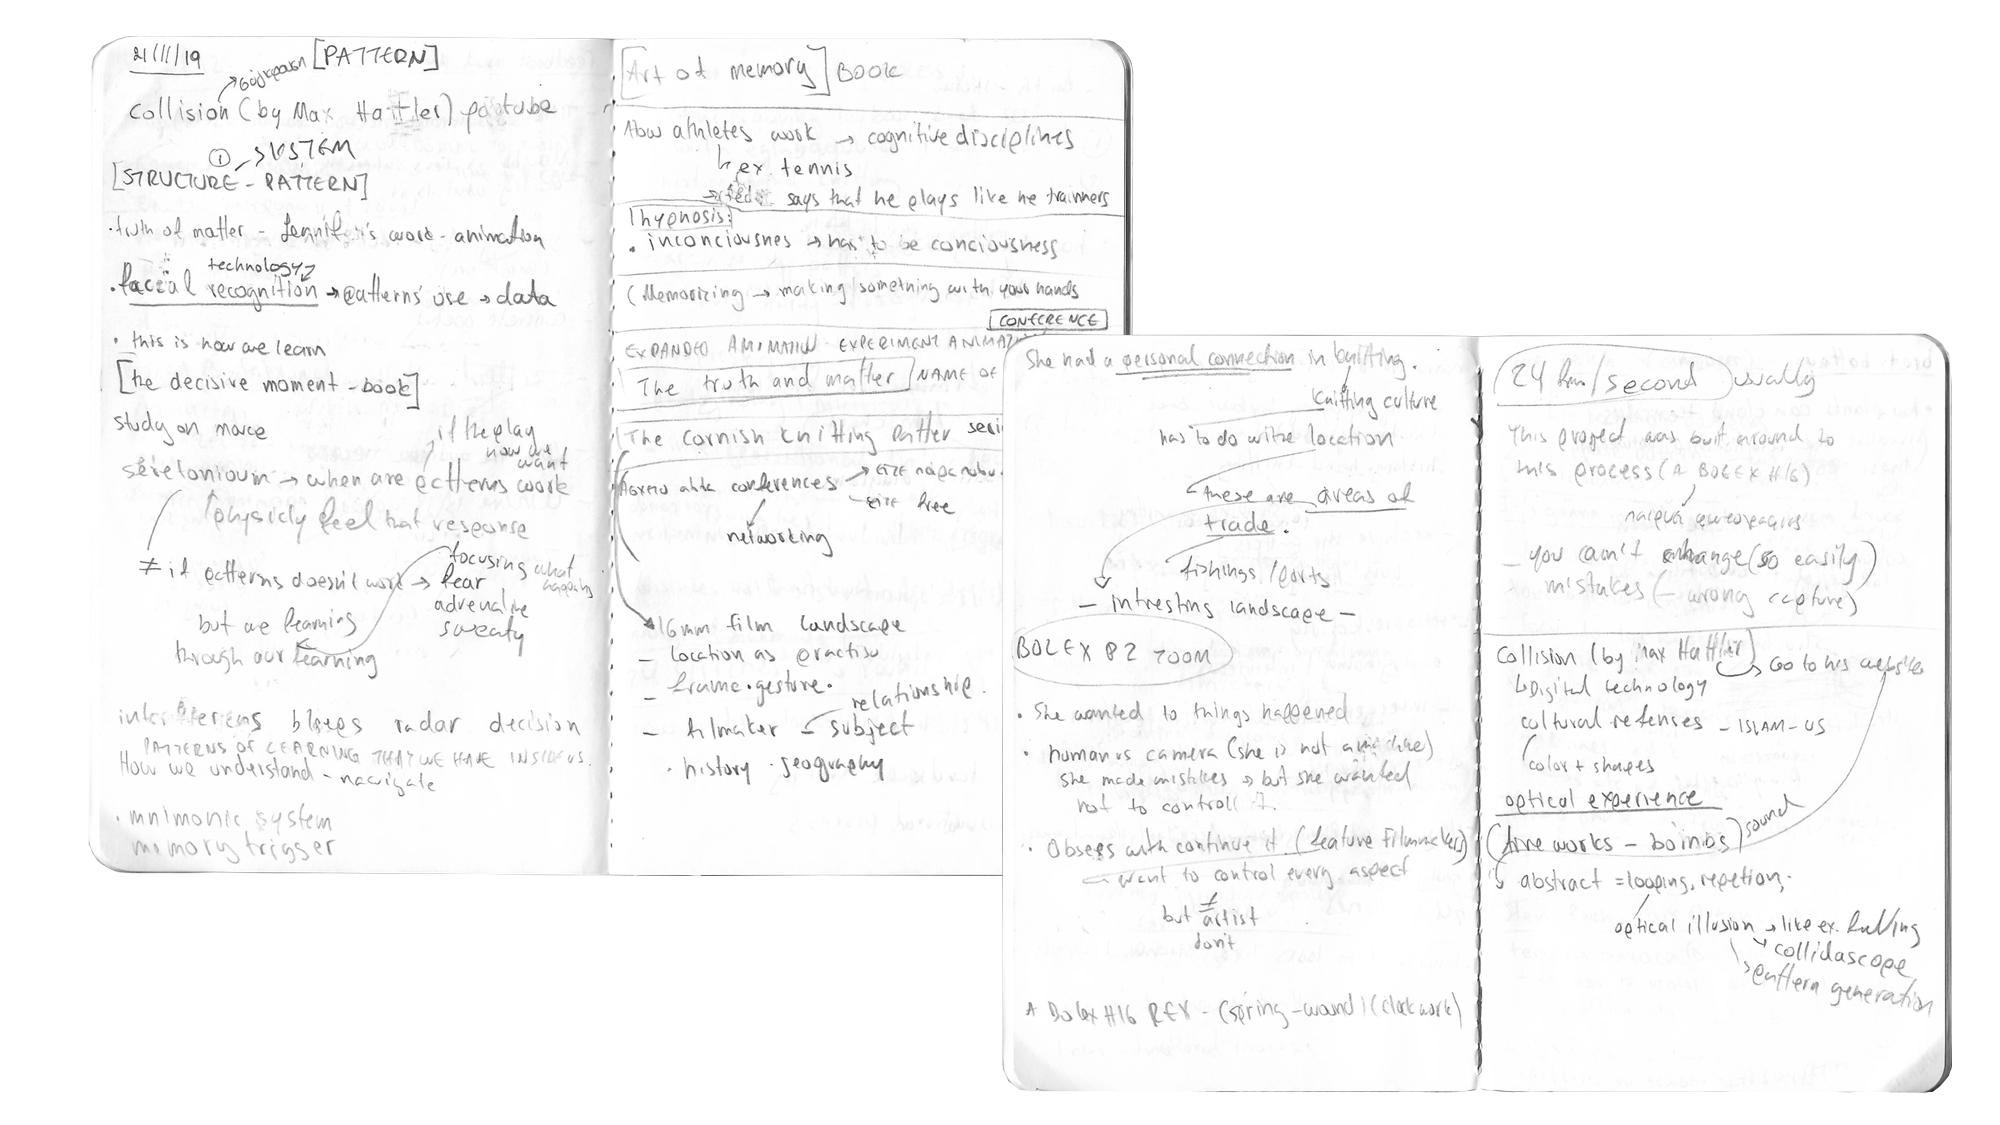 21/11/19 [PATTERN]
σύγκρουση
Collision (by Max Hattler) youtube
① SYSTEM
[STRUCTURE - PATTERN]
· truth of matter - Jennifer's work - animation
technology
· facial recognition → patterns' use → data
· this is how we learn
[the decisive moment - book]
study on
if the play
how we
want
→ when are patterns work
physicly feel that response
≠ if patterns doesn't work → fear
focusing what
happens
adrenaline
sweaty
but we learning
through our learning
radar decision
PATTERNS OF LEARNING THAT WE HAVE INSIDE US.
How we understand - navigate
· mnimonic system
memory trigger
[Art of memory] BOOK
How athletes work → cognitive disciplines
↳ ex. tennis
→ says that he plays like he trainners
hypnosis:
· inconciousnes → has to be conciousness
(Memorizing → making something with your hands
CONFERENCE
EXPANDED ANIMATION - EXPERIMENT
The truth and matter / NAME OF
The cornish knitting patter
conferences
free
networking
16mm film landscape
– location as practise
– frame · gesture ·
relationship.
– filmaker – subject
· history · geography
She had a personal connection in knitting.
knitting culture
has to do withe location
these are areas of
trade.
fishings / ports
– intresting landscape –
BOLEX 82 ZOOM
· She wanted to things happened
· human vs camera (she is not a machine)
she made mistakes → but she wanted
not to controll it.
· Obsess with continue it (feature filmmakers)
want to control every aspect
but ≠ artist
don't
A Bolex H16 REX - (spring-wound) (clockwork)
24 frm/second usually
This project was buit around to
this process (A BOLEX H16)
– you can't change (so easily)
mistakes (– wrong capture)
Collision (by Max Hattler)
→ Go to his website
↳ Digital technology
cultural refenses – ISLAM – US
color + shapes
optical experience
(fire works – boinbs) sound
↳ abstract = looping, repetion.
optical illusion → like ex.
→ collidascope
→ pattern generation